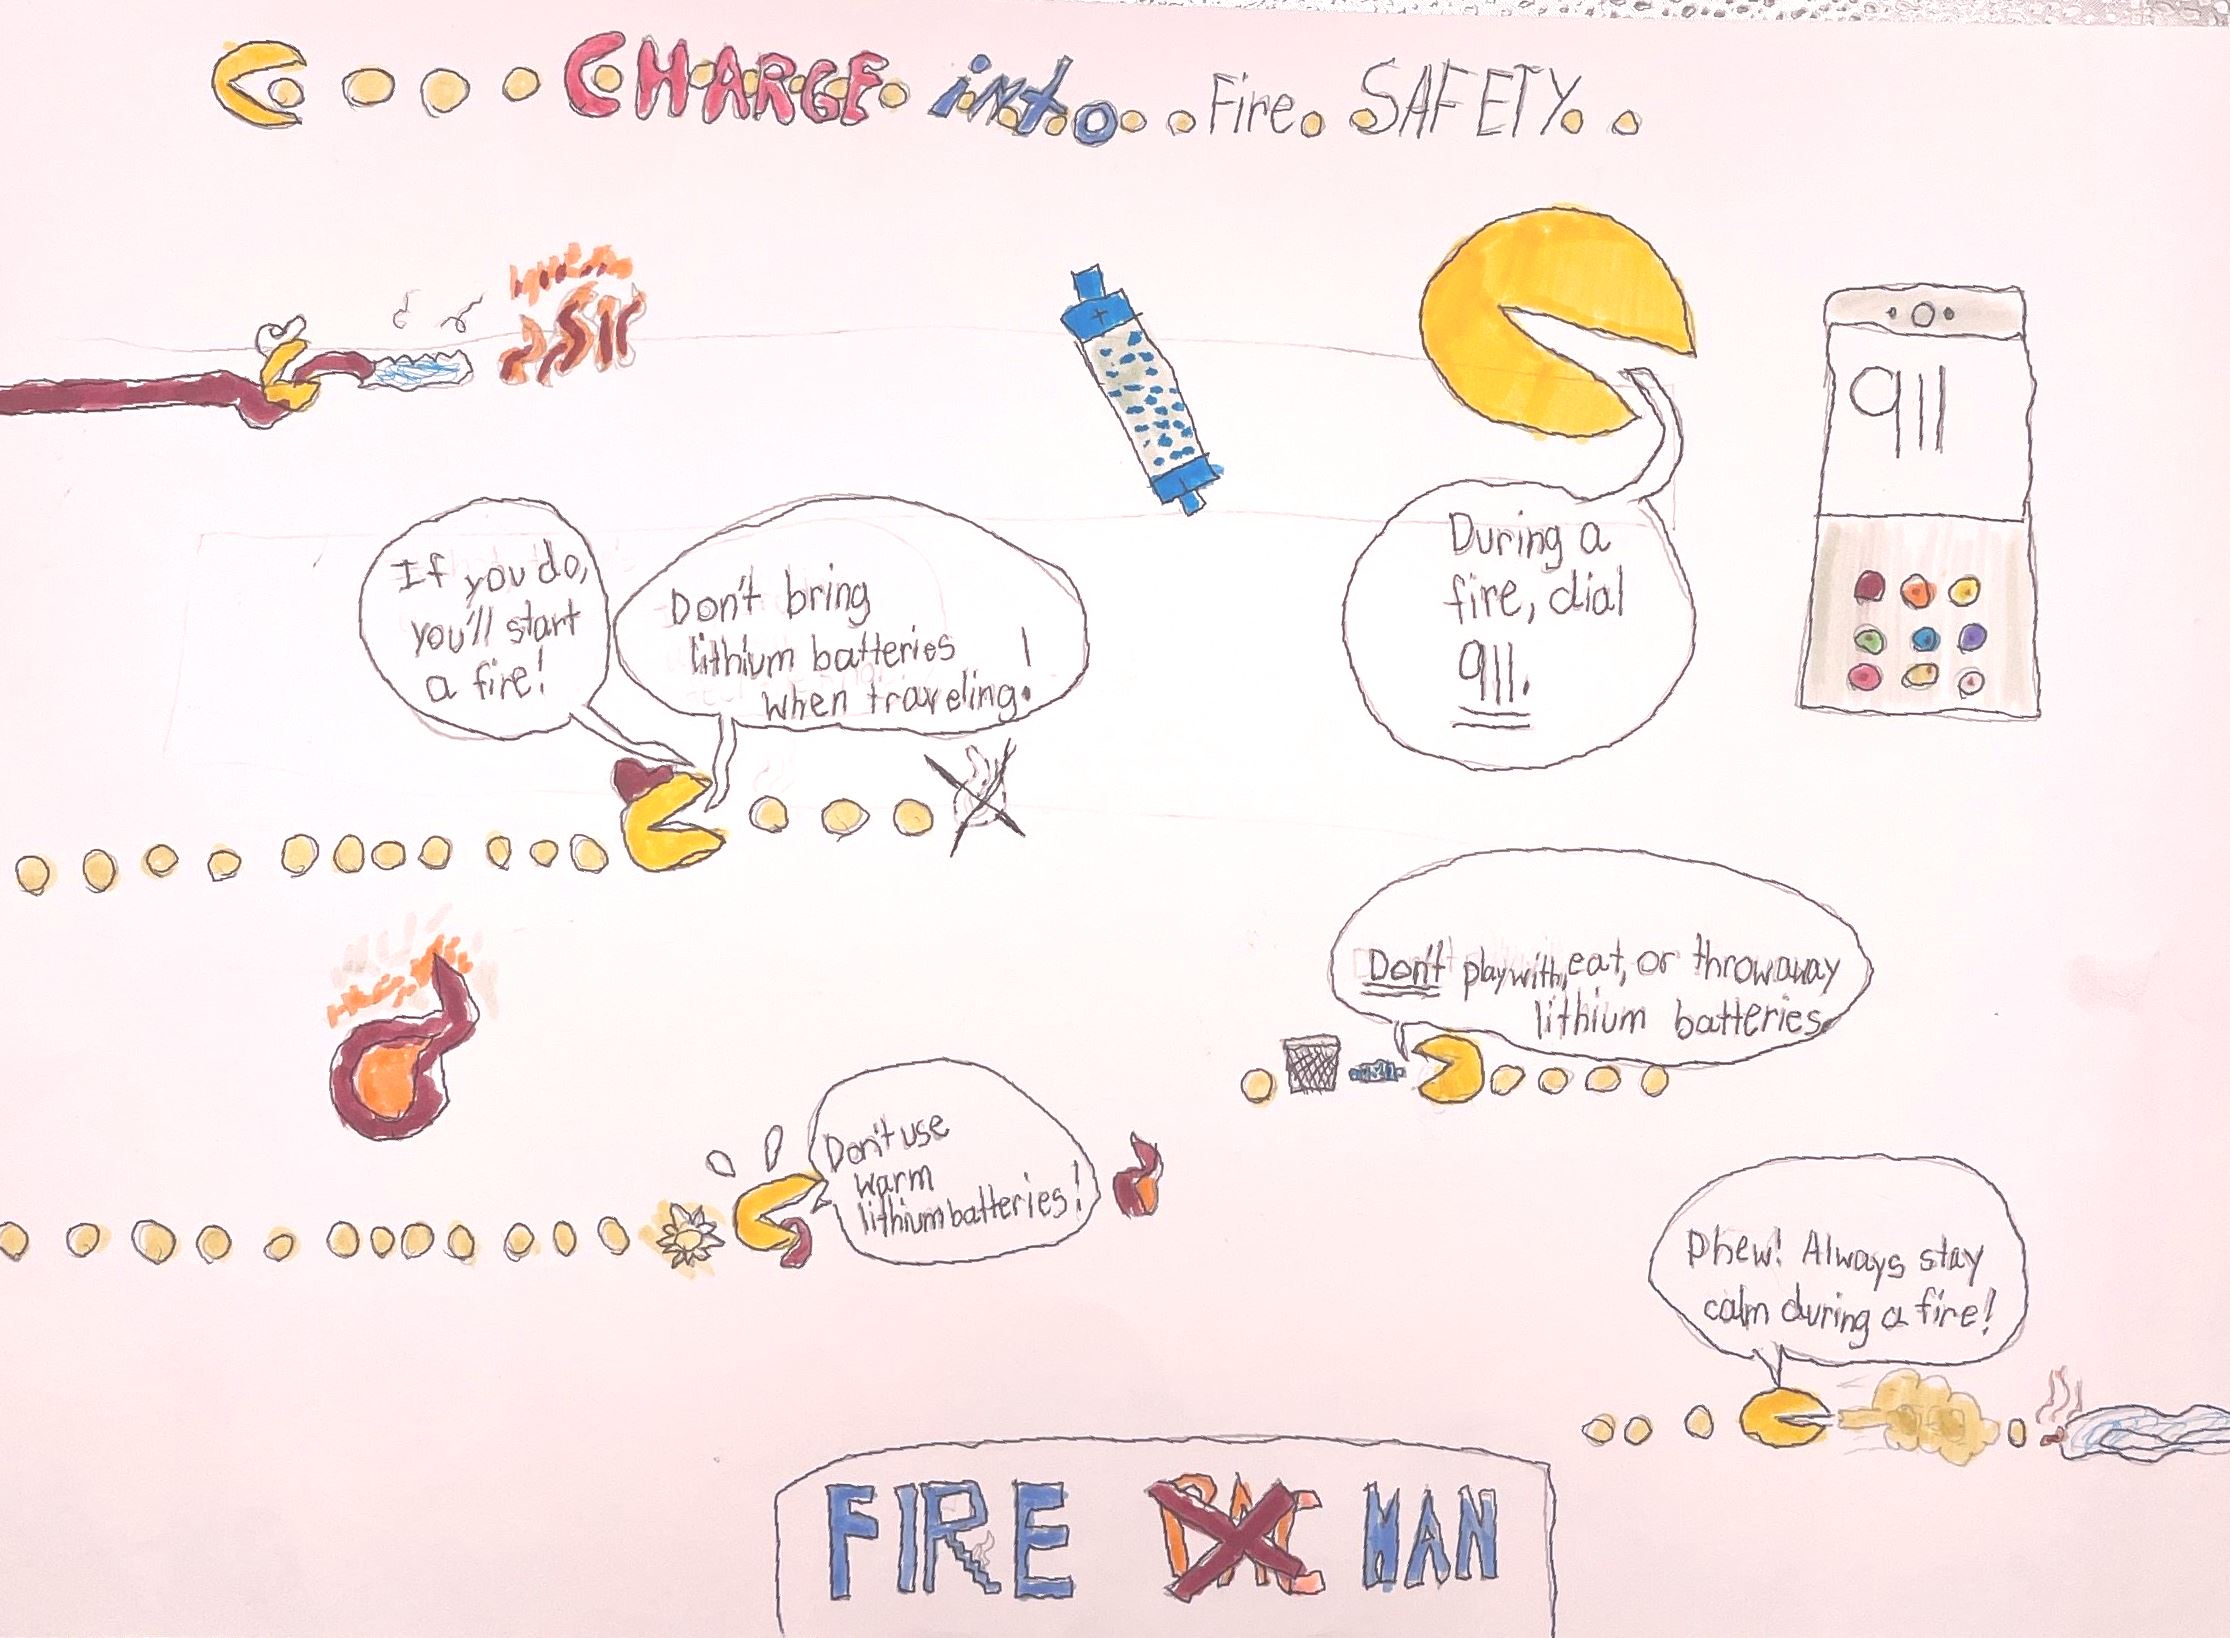 CHARGE into Fire SAFETY
911
During a
fire, dial
911.
If you do,
you'll start
a fire!
Don't bring
lithium batteries
when traveling!
Don't play with, eat, or throw away
lithium batteries.
Don't use
warm
lithium batteries!
Phew! Always stay
calm during a fire!
FIRE PAC MAN